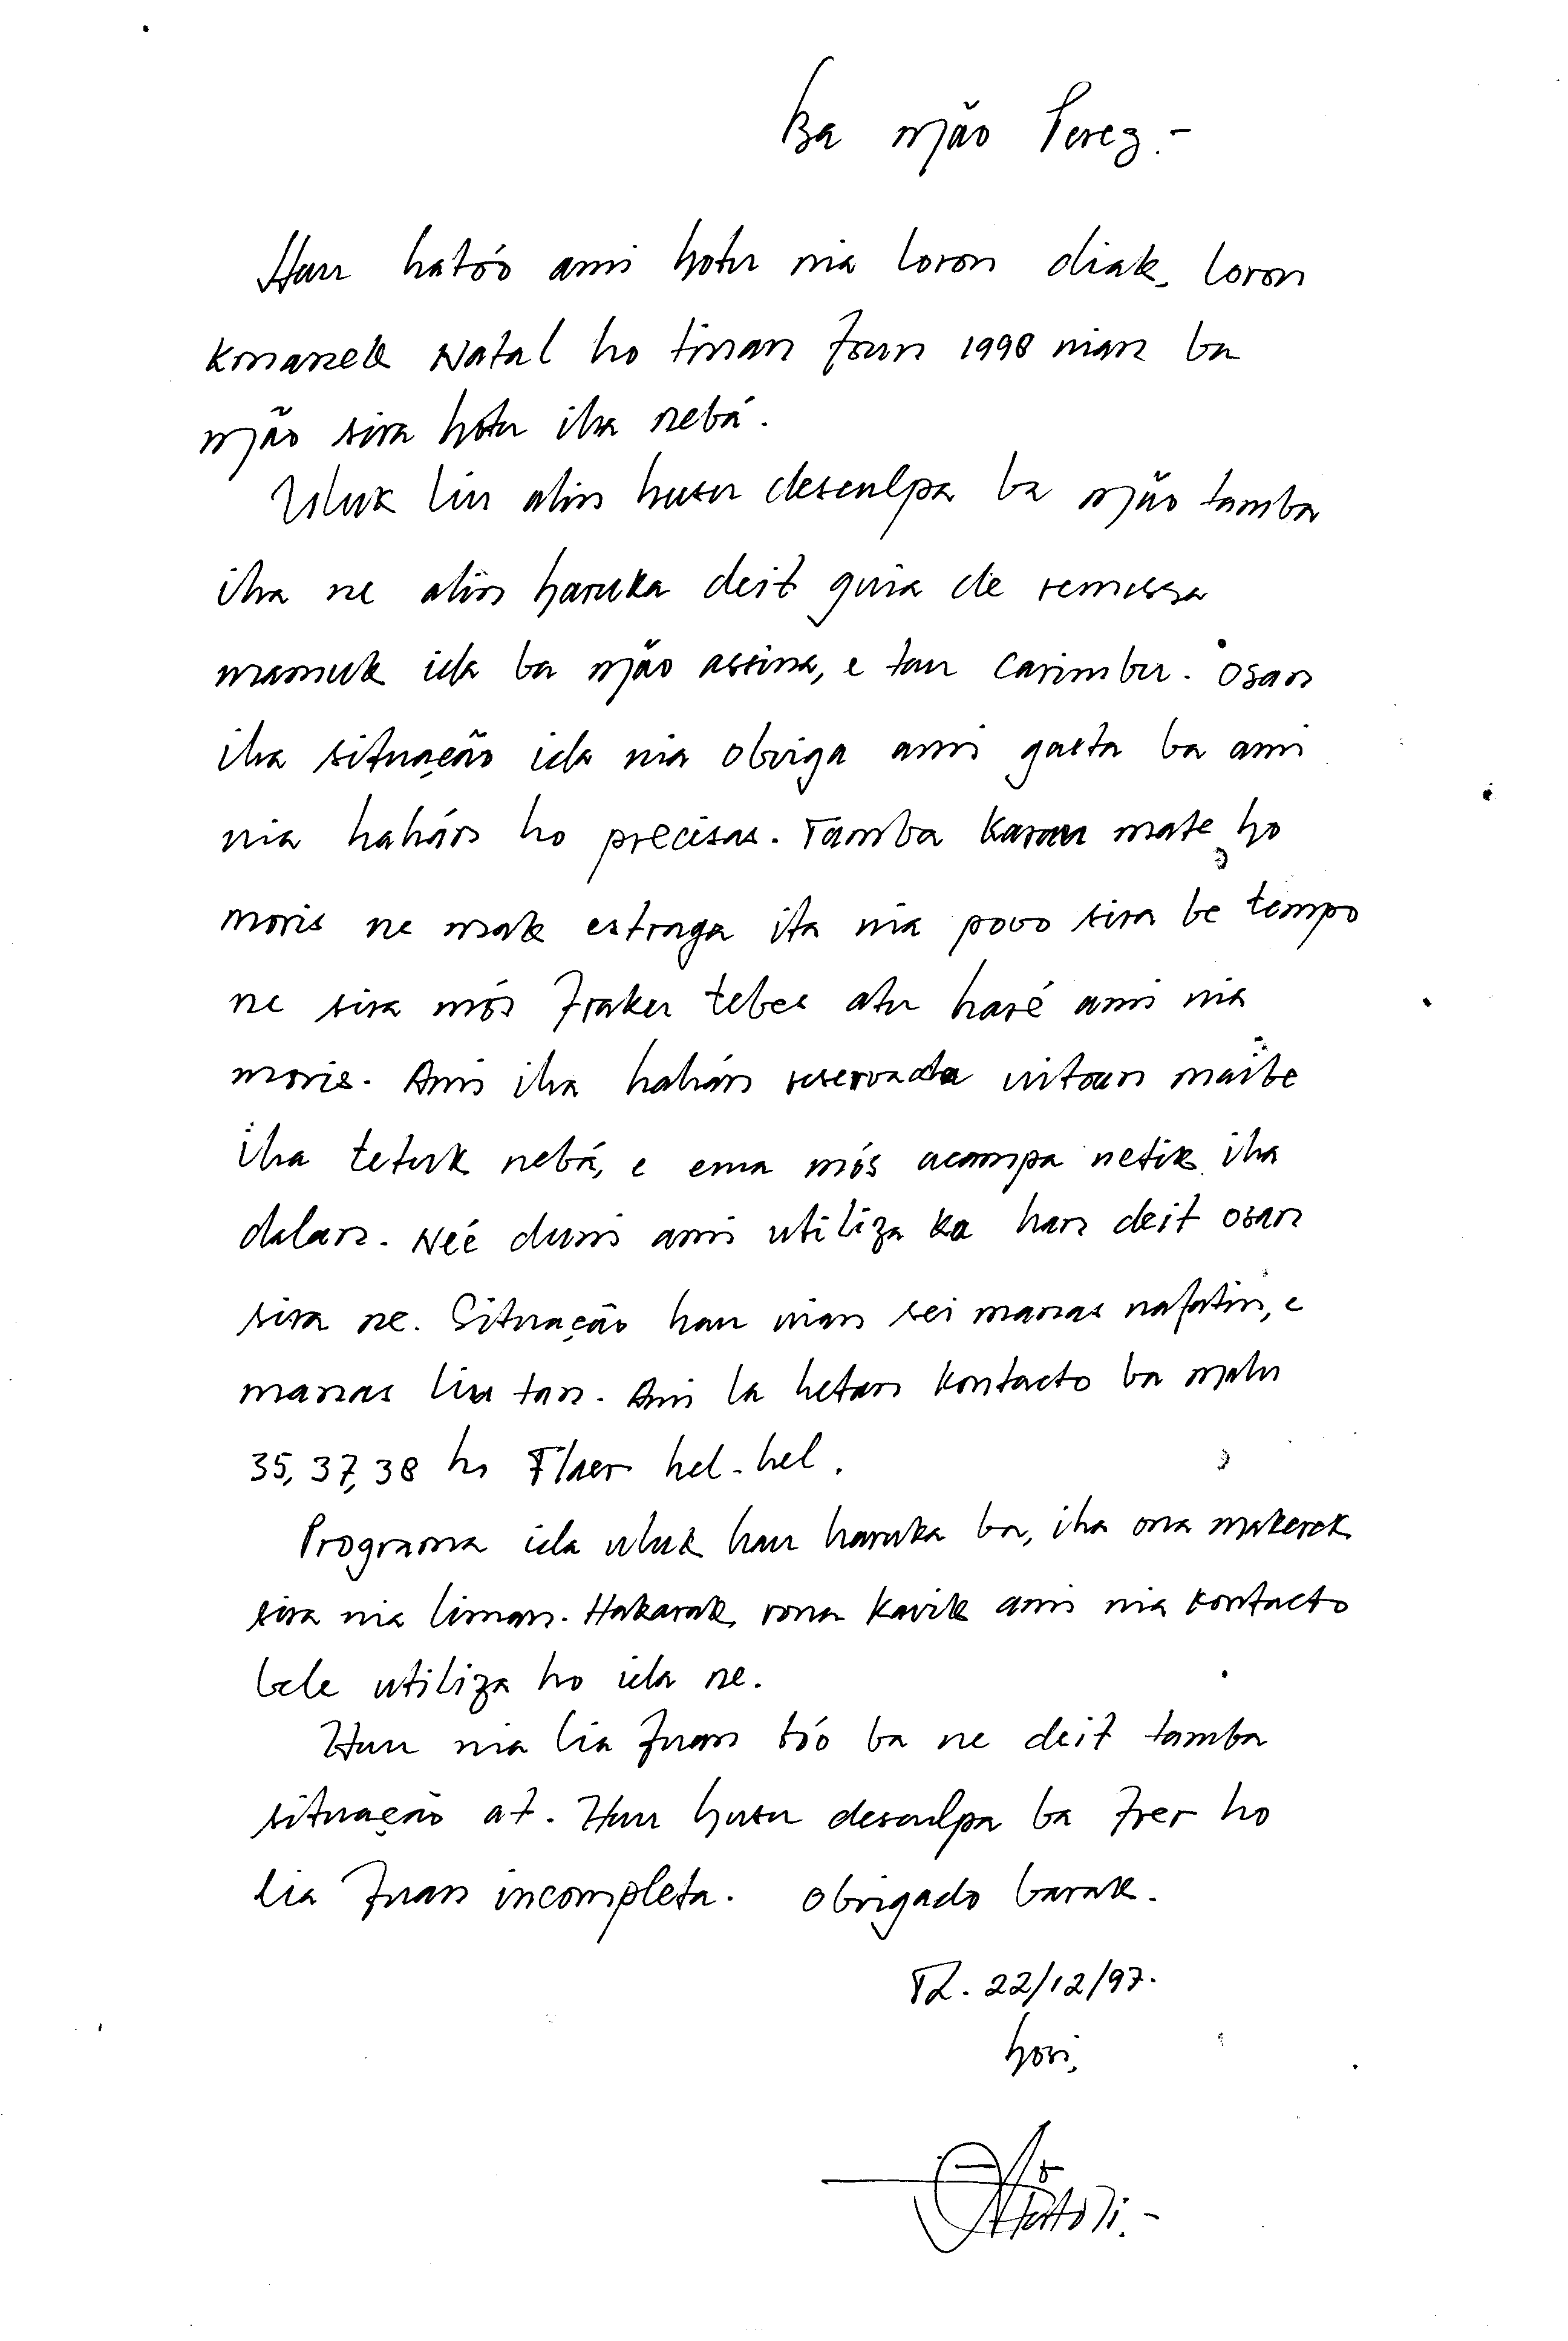 Ba mão Perez.-
Hau hatóo ami hotu nia loron diak, loron
kmanek Natal ho tinan foun 1998 nian ba
mão sira hotu iha nebá.
Uluk liu alin husu desculpa ba mão tamba
iha ne alin haruka deit guia de remessa
mamuk ida ba mão assina, e tau carimbu. Osan
iha situação ida nia obriga ami gasta ba ami
nia hahán ho precisas. Tamba karau mate ho
moris ne mak estraga ita nia povo sira be tempo
ne sira mós fraku tebes atu haré ami nia
moris. Ami iha hahán reservada uitoan maibe
iha tetuk nebá, e ema mós acampa netik iha
dalan. Neé duni ami utiliza ka han deit osan
sira ne. Situação hau nian sei manas nafatin, e
manas liu tan. Ami la hetan kontacto ba malu
35, 37, 38 ho Flaer hel-hel.
Programa ida uluk hau haruka ba, iha ona makerek
sira nia liman. Hakarak rona karik ami nia kontacto
bele utiliza ho ida ne.
Hau nia lia fuan tóo ba ne deit tamba
situação at. Hau husu desculpa ba Frer ho
lia fuan incompleta. Obrigado barak.
22/12/97.
hosi,